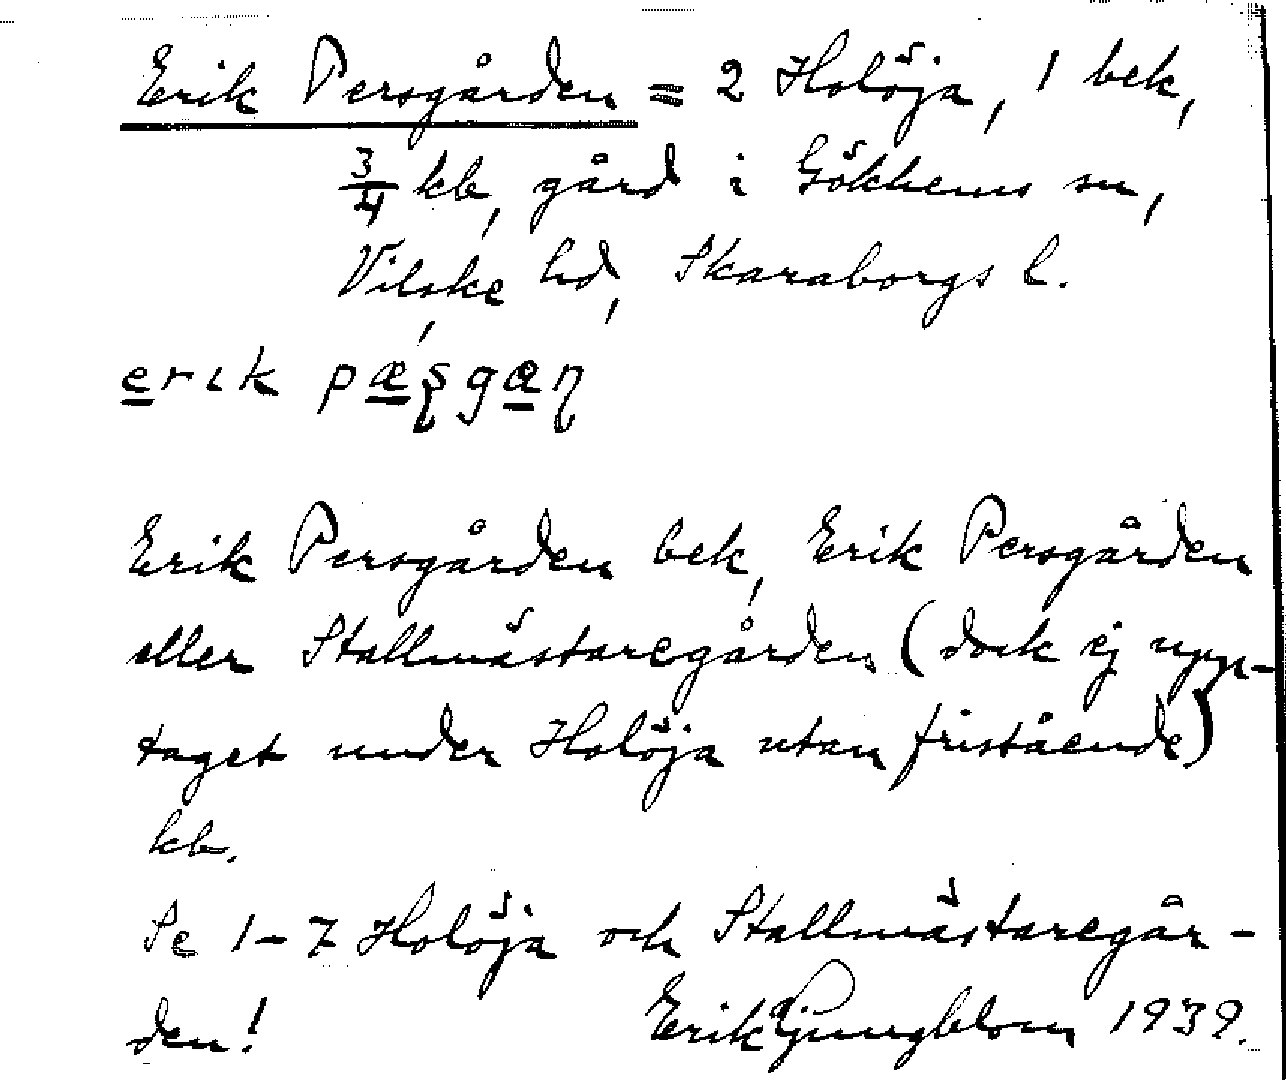 Erik Persgården = 2 Holöja, 1 bek,
3/4 kb, gård i Gökhems sn,
Vilske hd, Skaraborgs l.
erik pæʂgæɳ
Erik Persgården bek, Erik Persgården
eller Stallmästaregården (dock ej upp-
taget under Holöja utan fristående)
kb.
Se 1-7 Holöja och Stallmästaregår-
den! Erik Ljungblom 1939.